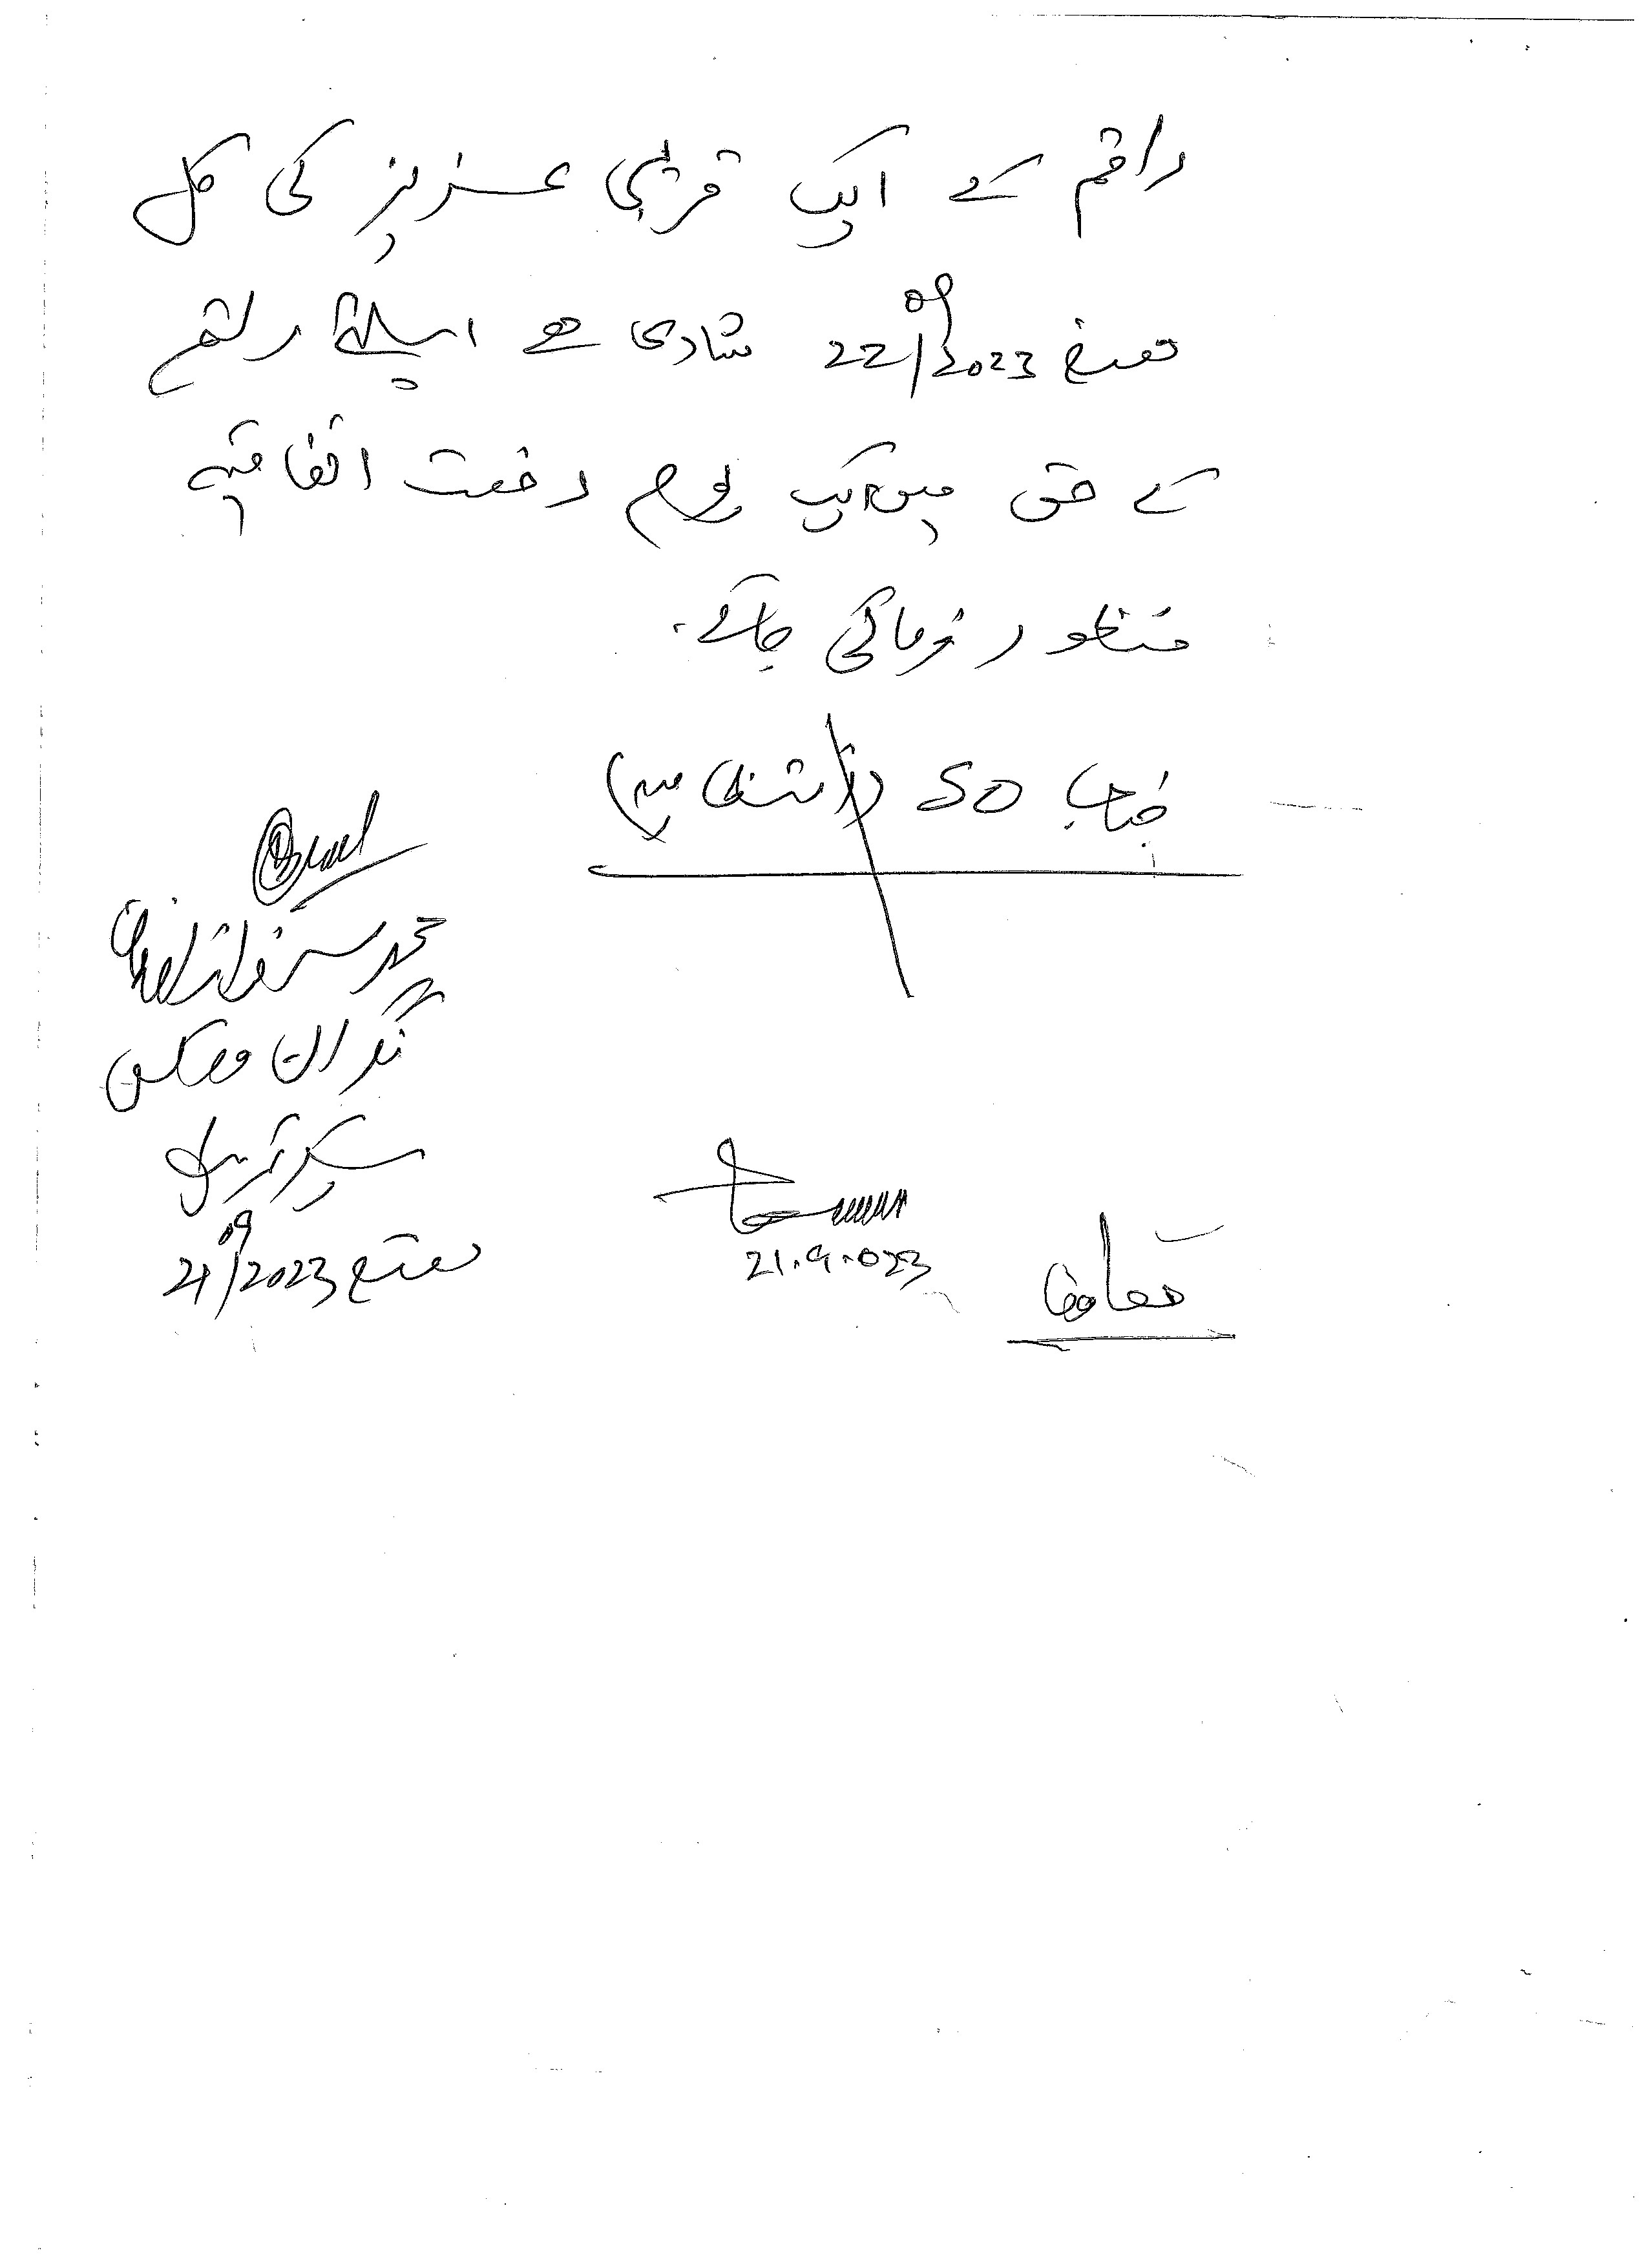 راقم کے ایک قریبی عزیز کی کل
مورخہ 22/09/2023 شادی ہے اسلئے راقم
کے حق میں ایک یوم رخصت اتفاقیہ
منظور فرمائی جائے۔
جناب SO (انتظامیہ)
محمد سرفراز
نگران
مورخہ 21/09/2023
21.9.023